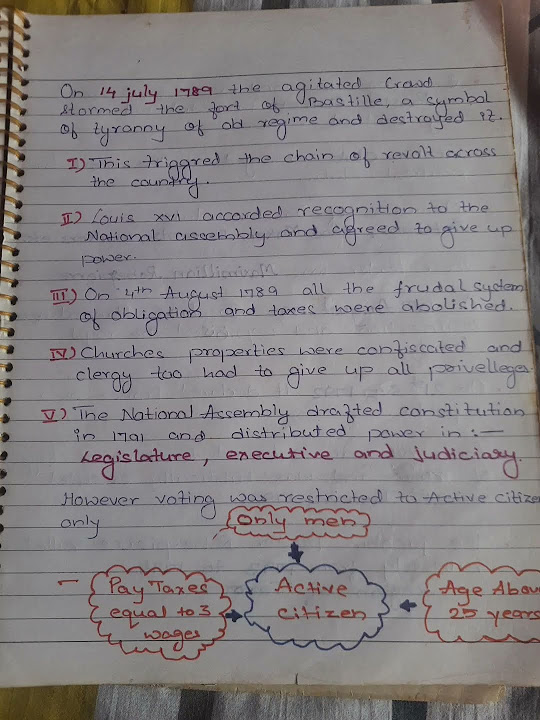 On 14 july 1789 the agitated Crowd
stormed the fort of Bastille, a symbol
of tyranny of old regime and destroyed it.
I) This triggred the chain of revolt across
the country.
II) Louis XVI accorded recognition to the
National assembly and agreed to give up
power.
III) On 4th August 1789 all the frudal system
of obligation and taxes were abolished.
IV) Churches properties were confiscated and
clergy too had to give up all poivelleges
V) The National Assembly drafted constitution
in 1791 and distributed power in :—
Legislature, executive and judiciary.
However voting was restricted to Active citize
only
Only men
Pay Taxes
equal to 3
wages
Active
citizen
Age Above
25 years